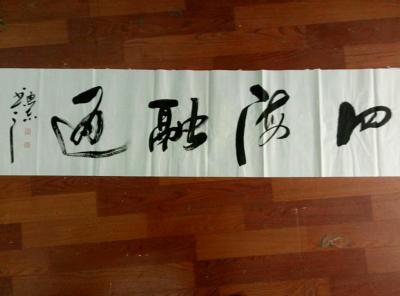 四海融通